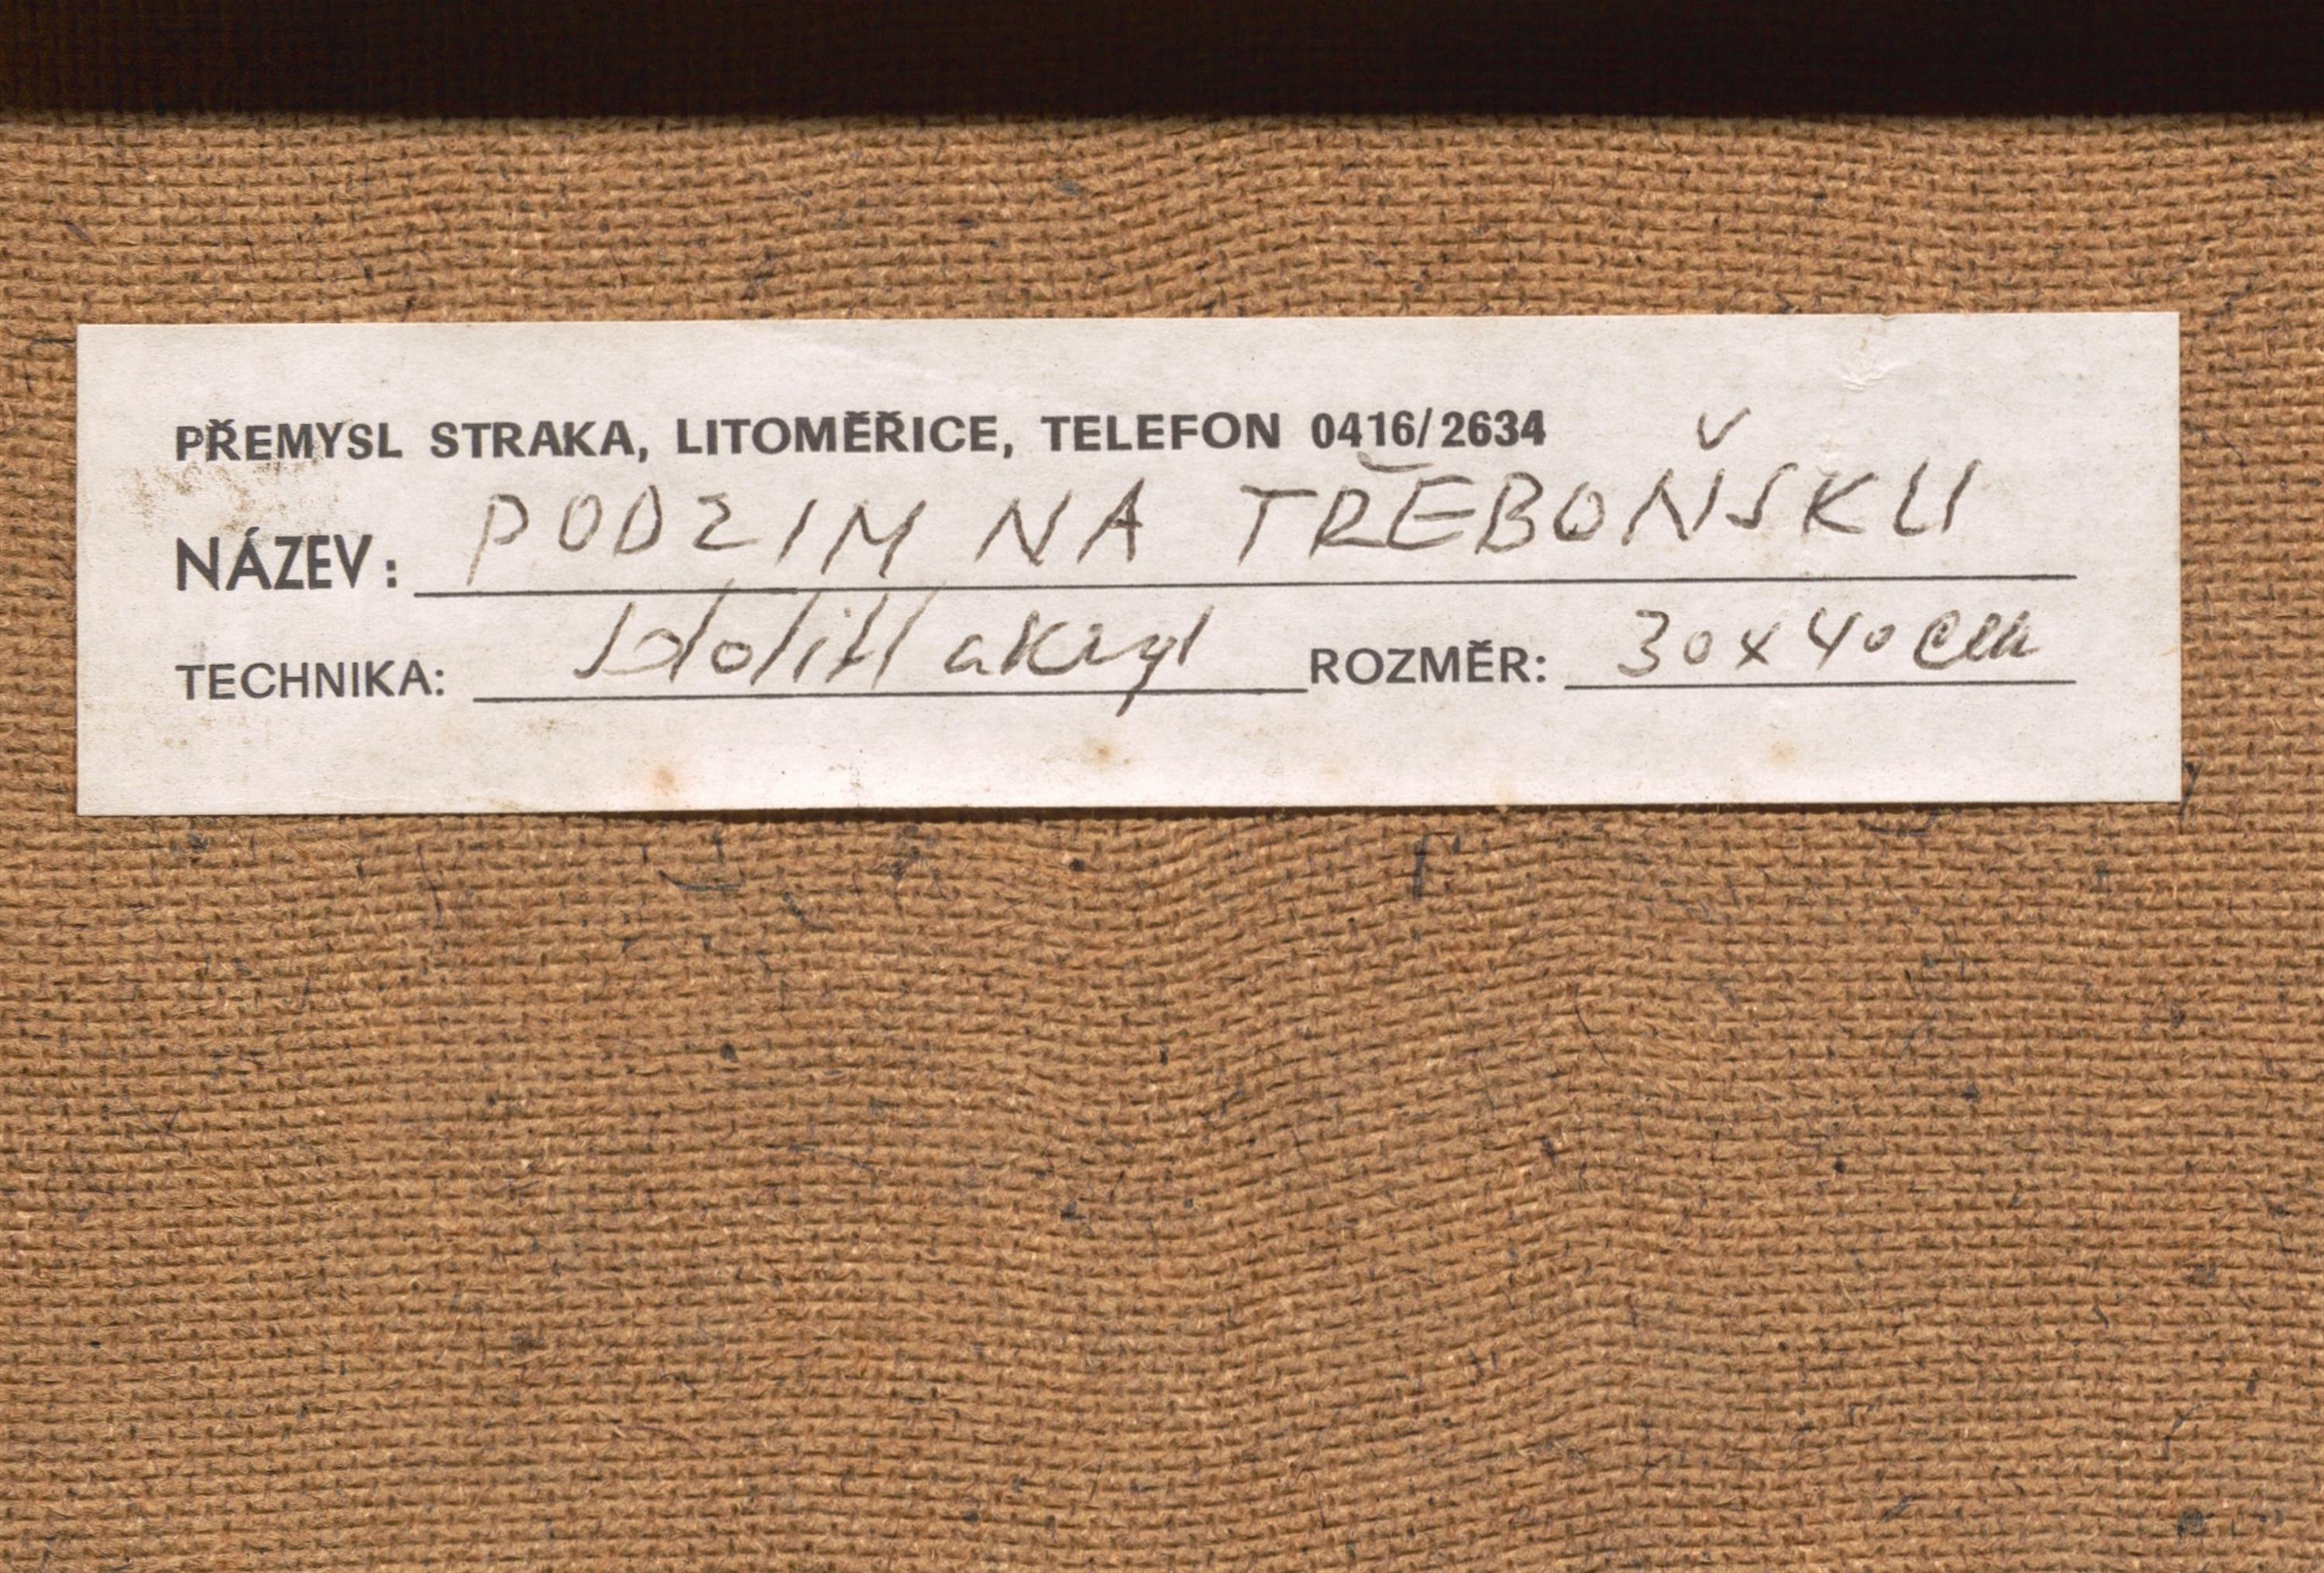 PŘEMYSL STRAKA, LITOMĚŘICE, TELEFON 0416/2634
NÁZEV: PODZIM NA TŘEBOŇSKU
TECHNIKA: akryl ROZMĚR: 30x40 cm